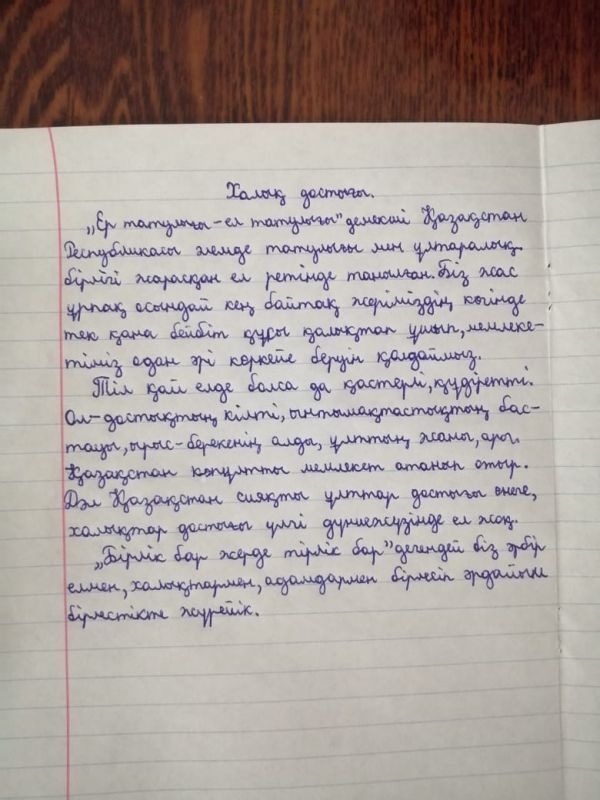 Халық достығы.
„Ер татулығы - ел татулығы" демекші Қазақстан
Республикасы әлемде татулығы мен ұлтаралық
бірлігі жарасқан ел ретінде танылған. Біз жас
ұрпақ осындай кең байтақ жеріміздің көгінде
тек қана бейбіт құсы қалықтап ұшып, мемлеке-
тіміз одан әрі көркейе беруін қалаймыз.
Тіл қай елде болса да қастерлі, құдіретті.
Ол-достықтың кілті, ынтымақтастықтың бас-
тауы, ырыс-берекенің алды, ұлттың жаны, ары.
Қазақстан көпұлтты мемлекет атанып отыр.
Дәл Қазақстан сияқты ұлттар достығы өнеге,
халықтар достығы үлгі дүниежүзінде ел жоқ.
„Бірлік бар жерде тірлік бар" дегендей біз әрбір
елмен, халықтармен, адамдармен бірлесіп әрдайым
бірлестікте жүрейік.